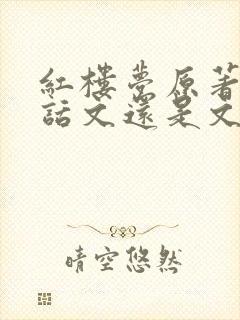 紅樓夢原著
話文還是文
晴空悠然